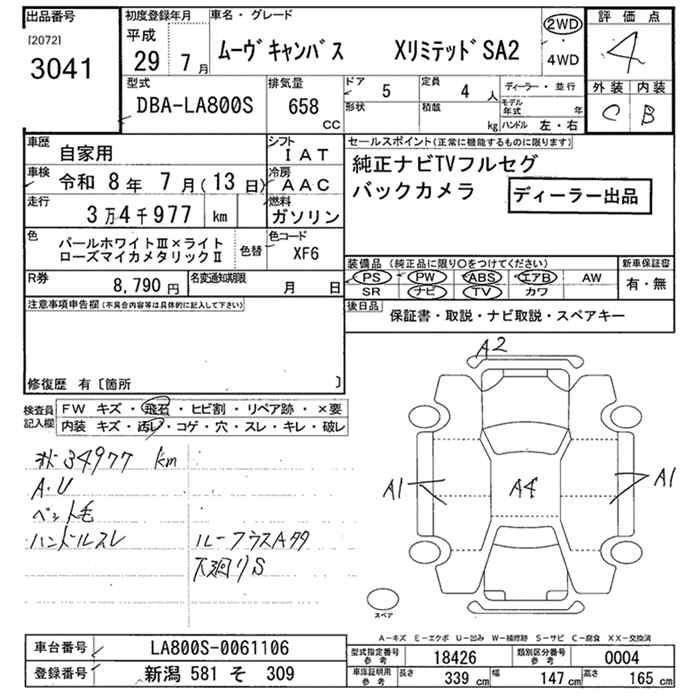 出品番号
[2072]
3041
初度登録年月
平成
29 7月
車名・グレード
ムーヴキャンバス XリミテッドSA2
2WD
4WD
評価点
4
外装 内装
C B
型式
DBA-LA800S
排気量
658
CC
ドア 5
形状
定員 4 人
積載 kg
ディーラー・並行
モデル年式 年
ハンドル 左・右
車歴
自家用
シフト
IAT
車検 令和 8年 7月(13日)
冷房
AAC
走行 3万4千977 km
燃料
ガソリン
色
パールホワイトⅢ×ライト
ローズマイカメタリックⅡ
色替
色コード
XF6
R券 8,790円
名変通知期限 月 日
セールスポイント(正常に機能するものに限ります)
純正ナビTVフルセグ
バックカメラ
ディーラー出品
装備品 (純正品に限り○をつけてください)
PS PW ABS エアB AW
SR ナビ TV カワ
新車保証書
有・無
後日品
保証書・取説・ナビ取説・スペアキー
注意事項申告欄(不具合内容等は具体的に記入して下さい)
修復歴 有〔箇所 〕
検査員記入欄
FW キズ・飛石・ヒビ割・リペア跡・×要
内装 キズ・汚レ・コゲ・穴・スレ・キレ・破レ
34977 km
A・U
ペット毛
ハンドルスレ
ルーフラスAタタ
下廻りS
A2
A1
A4
A1
スペア
A-キズ E-エクボ U-凹み W-補修跡 S-サビ C-腐食 XX-交換済
車台番号 LA800S-0061106
登録番号 新潟 581 そ 309
型式指定番号 参考 18426
類別区分番号 参考 0004
車庫証明用 参考 長さ 339 cm 幅 147 cm 高さ 165 cm